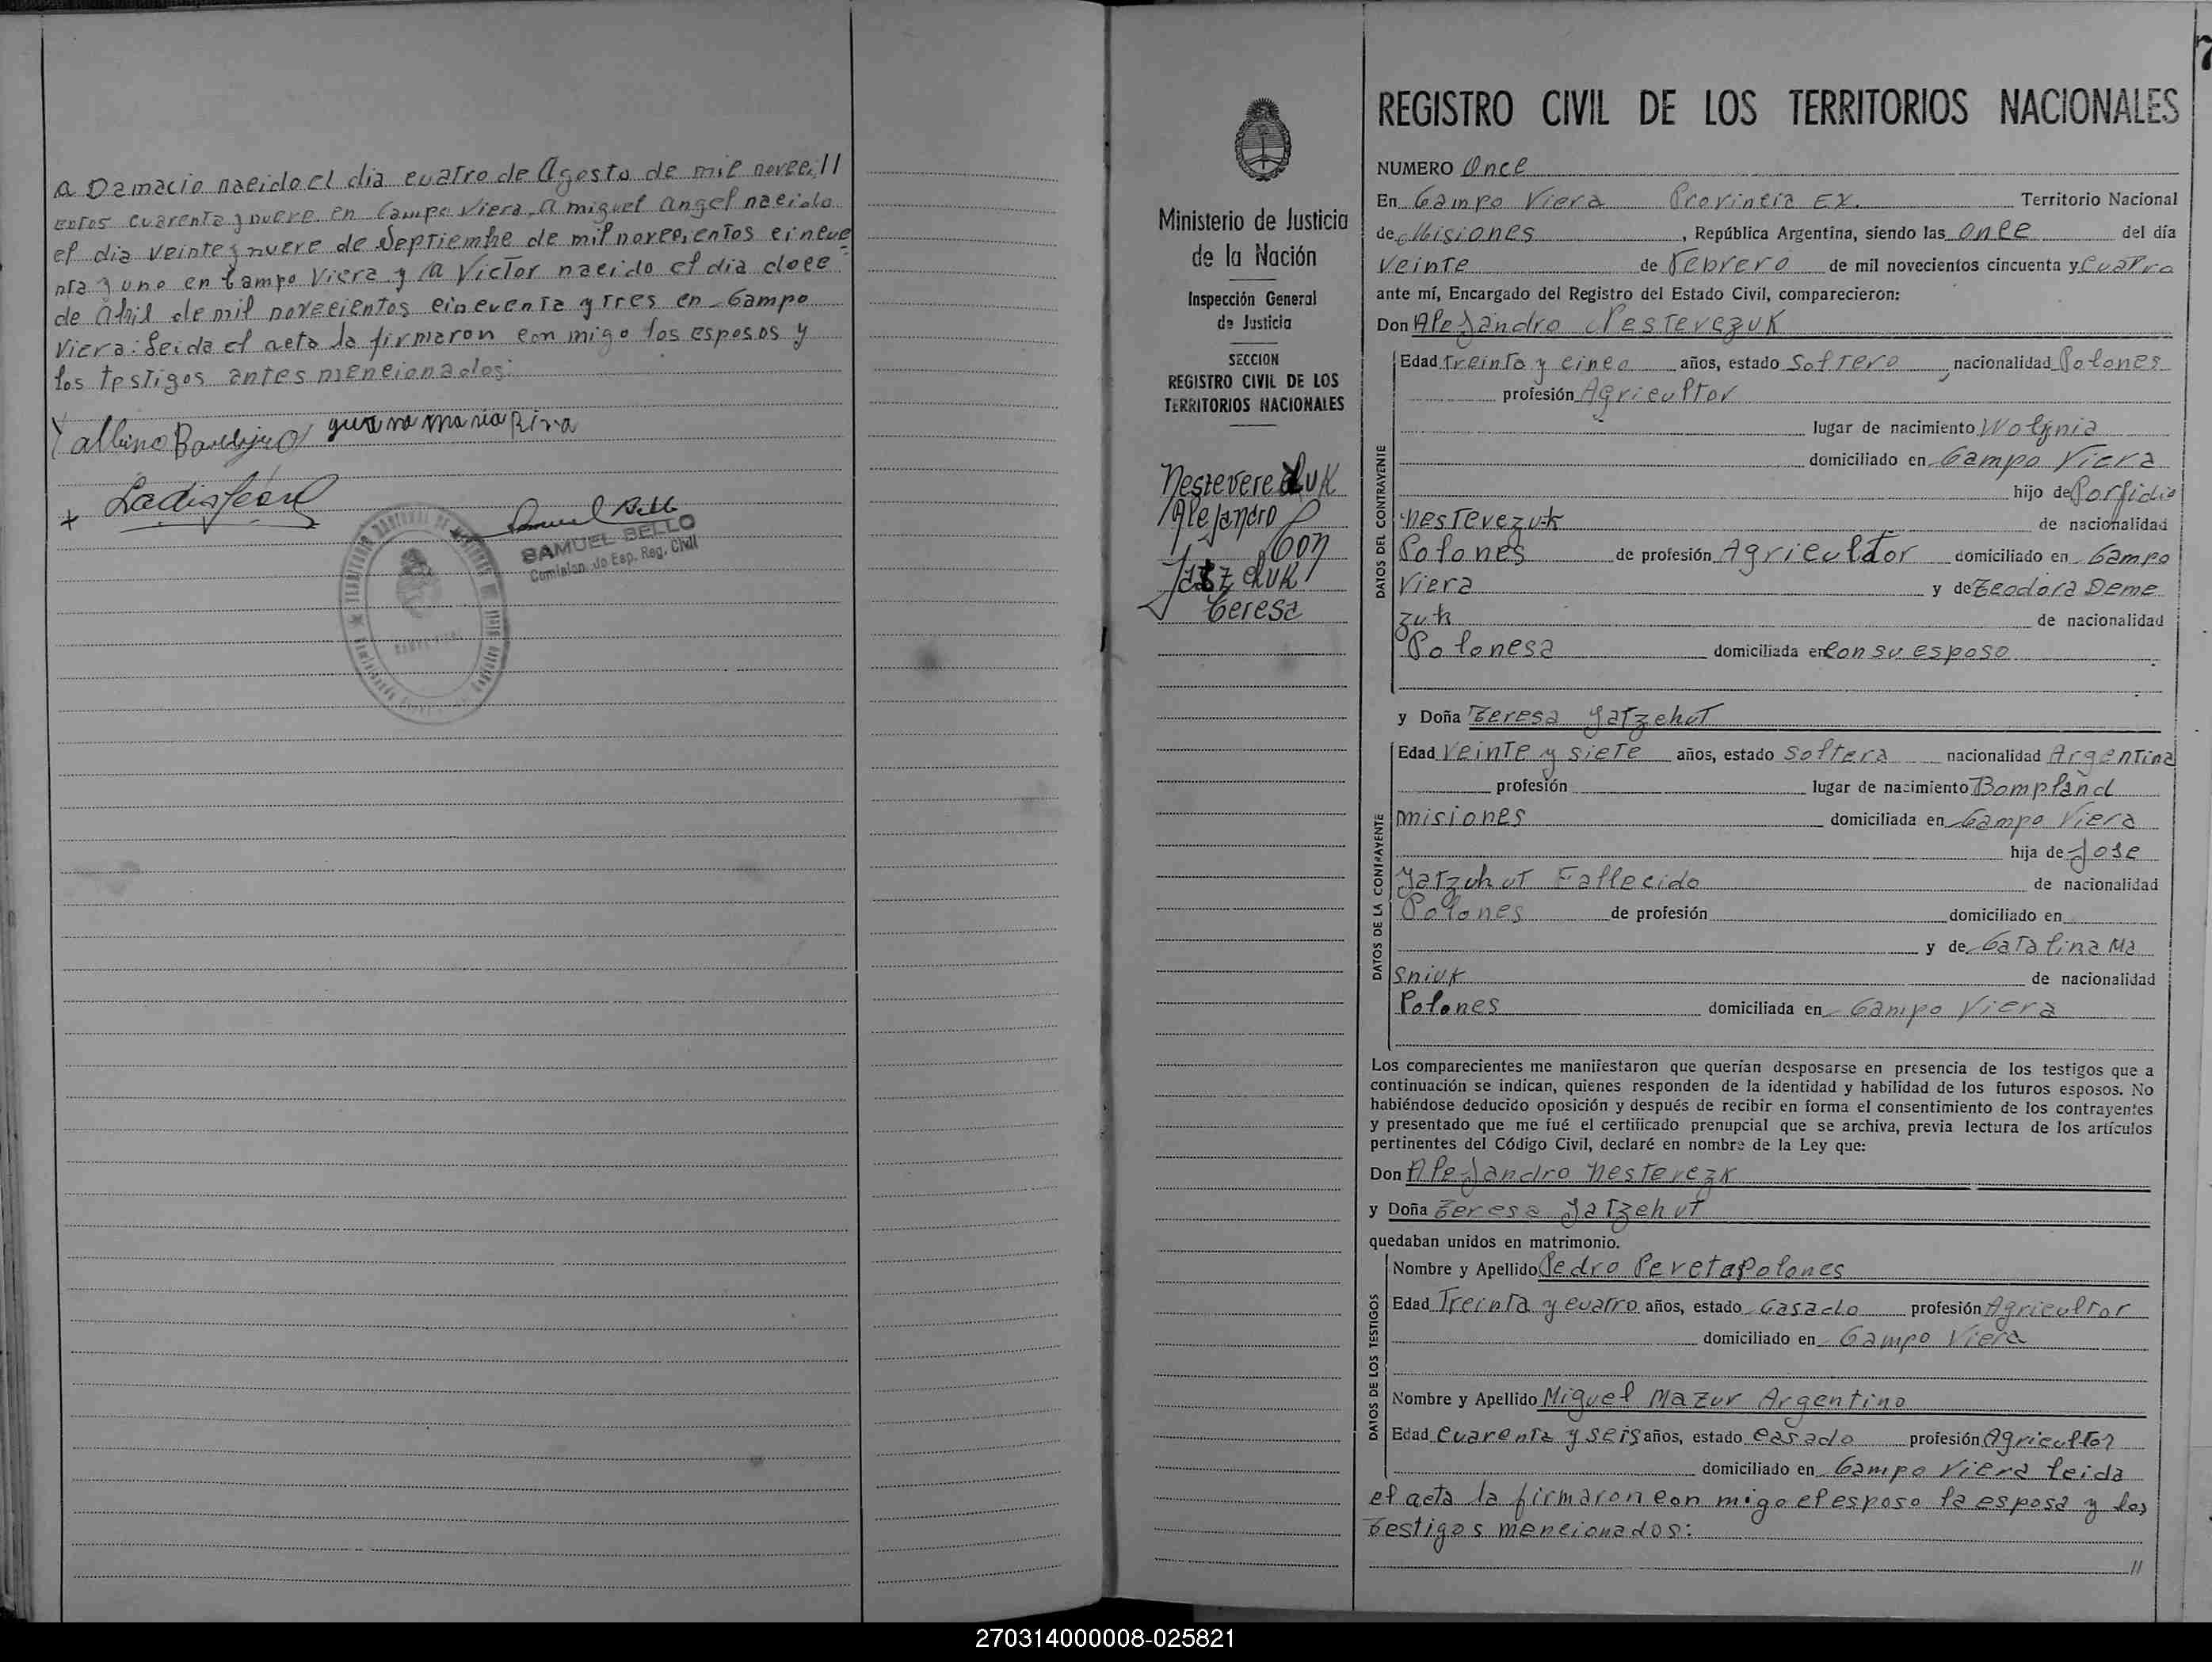 a Damacio nacido el dia cuatro de Agosto de mil noveci//
entos cuarenta y nueve en Campo Viera, a miguel angel nacido
el dia veinte y nueve de Septiembre de mil novecientos cincue
nta y uno en Campo Viera y a Victor nacido el dia doce
de abril de mil novecientos cincuenta y tres en Campo
Viera: Leida el acta la firmaron con migo los esposos y
los testigos antes mencionados:
SAMUEL BELLO
Comision. do Esp. Reg. Civil
Ministerio de Justicia
de la Nación
Inspección General
de Justicia
SECCION
REGISTRO CIVIL DE LOS
TERRITORIOS NACIONALES
Alejandro
Con
Teresa
REGISTRO CIVIL DE LOS TERRITORIOS NACIONALES
NUMERO Once
En Campo Viera Provincia Ex. Territorio Nacional
de Misiones, República Argentina, siendo las once del día
veinte de Febrero de mil novecientos cincuenta y cuatro
ante mí, Encargado del Registro del Estado Civil, comparecieron:
Don Alejandro Nesterezuk
DATOS DEL CONTRAYENTE
Edad treinta y cinco años, estado Soltero, nacionalidad Polones
profesión Agricultor
lugar de nacimiento Wolynia
domiciliado en Campo Viera
hijo de Porfidio
Nesterezuk de nacionalidad
Polones de profesión Agricultor domiciliado en Campo
Viera y de Teodora Deme
zuk de nacionalidad
Polonesa domiciliada en con su esposo
y Doña Teresa Jatzchut
DATOS DE LA CONTRAYENTE
Edad Veinte y siete años, estado Soltera nacionalidad Argentina
profesión lugar de nacimiento Bompland
misiones domiciliada en Campo Viera
hija de Jose
Jatzchut Fallecido de nacionalidad
Polones de profesión domiciliado en
y de Catalina Ma
sniuk de nacionalidad
Polones domiciliada en Campo Viera
Los comparecientes me manifestaron que querían desposarse en presencia de los testigos que a
continuación se indican, quienes responden de la identidad y habilidad de los futuros esposos. No
habiéndose deducido oposición y después de recibir en forma el consentimiento de los contrayentes
y presentado que me fué el certificado prenupcial que se archiva, previa lectura de los artículos
pertinentes del Código Civil, declaré en nombre de la Ley que:
Don Alejandro Nesterezk
y Doña Teresa Jatzchut
quedaban unidos en matrimonio.
DATOS DE LOS TESTIGOS
Nombre y Apellido Pedro Pereta Polones
Edad Treinta y cuatro años, estado Casado profesión Agricultor
domiciliado en Campo Viera
Nombre y Apellido Miguel Mazur Argentino
Edad Cuarenta y seis años, estado casado profesión Agricultor
domiciliado en Campo Viera leida
el acta la firmaron con migo el esposo la esposa y los
testigos mencionados:
//
270314000008-025821